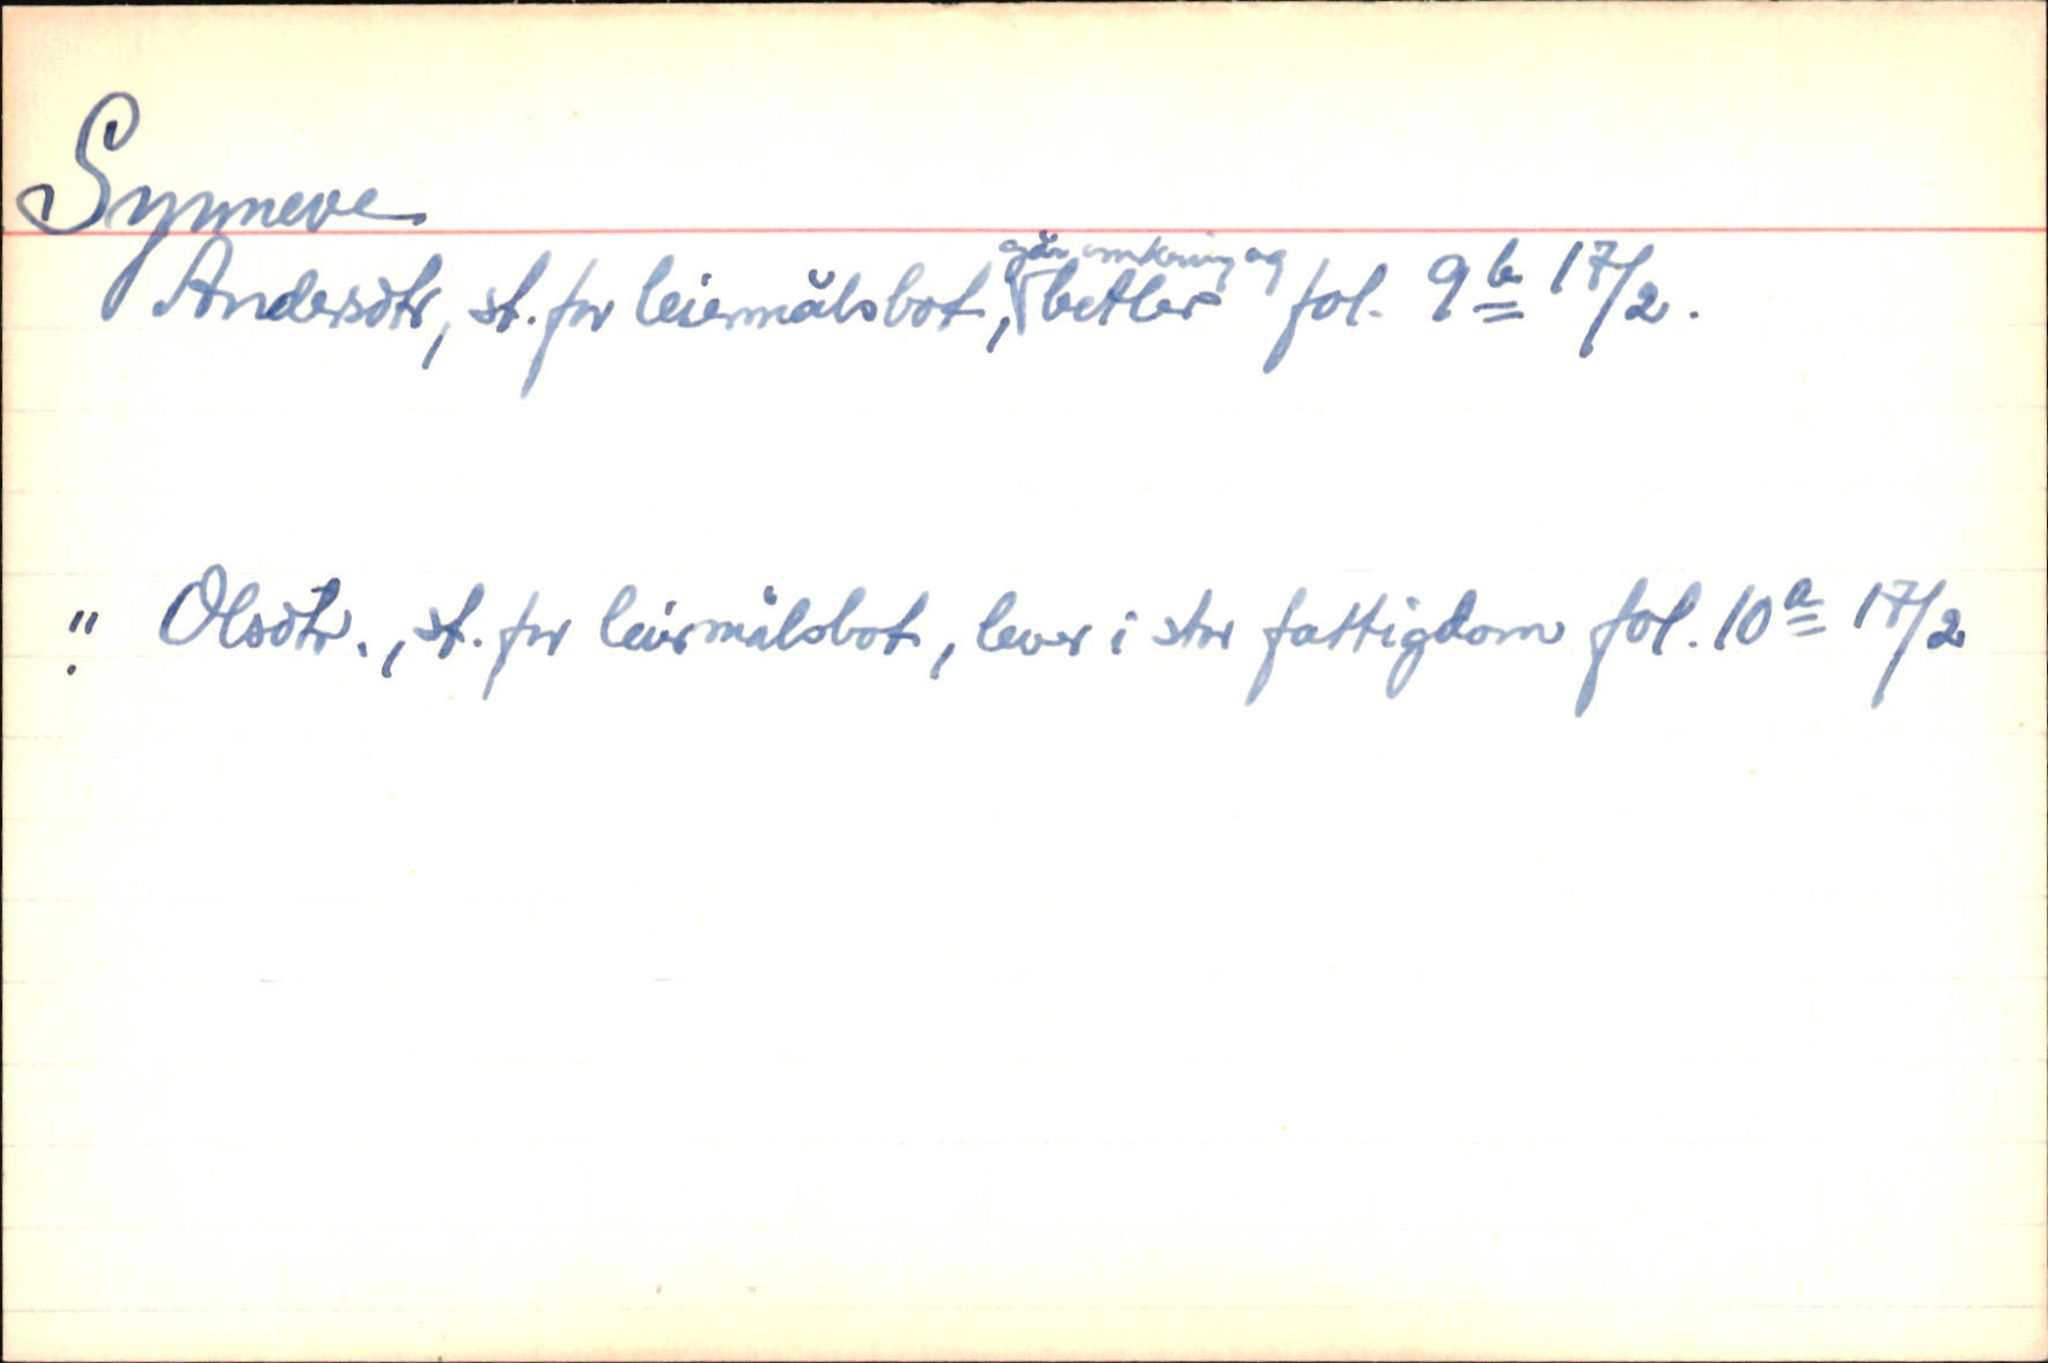 Synneve
Andersdtr, st. for leiermålsbot, går omkring og betler fol. 9b 17/2.
" Olsdtr., st. for leiermålsbot, lever i stor fattigdom fol. 10a 17/2